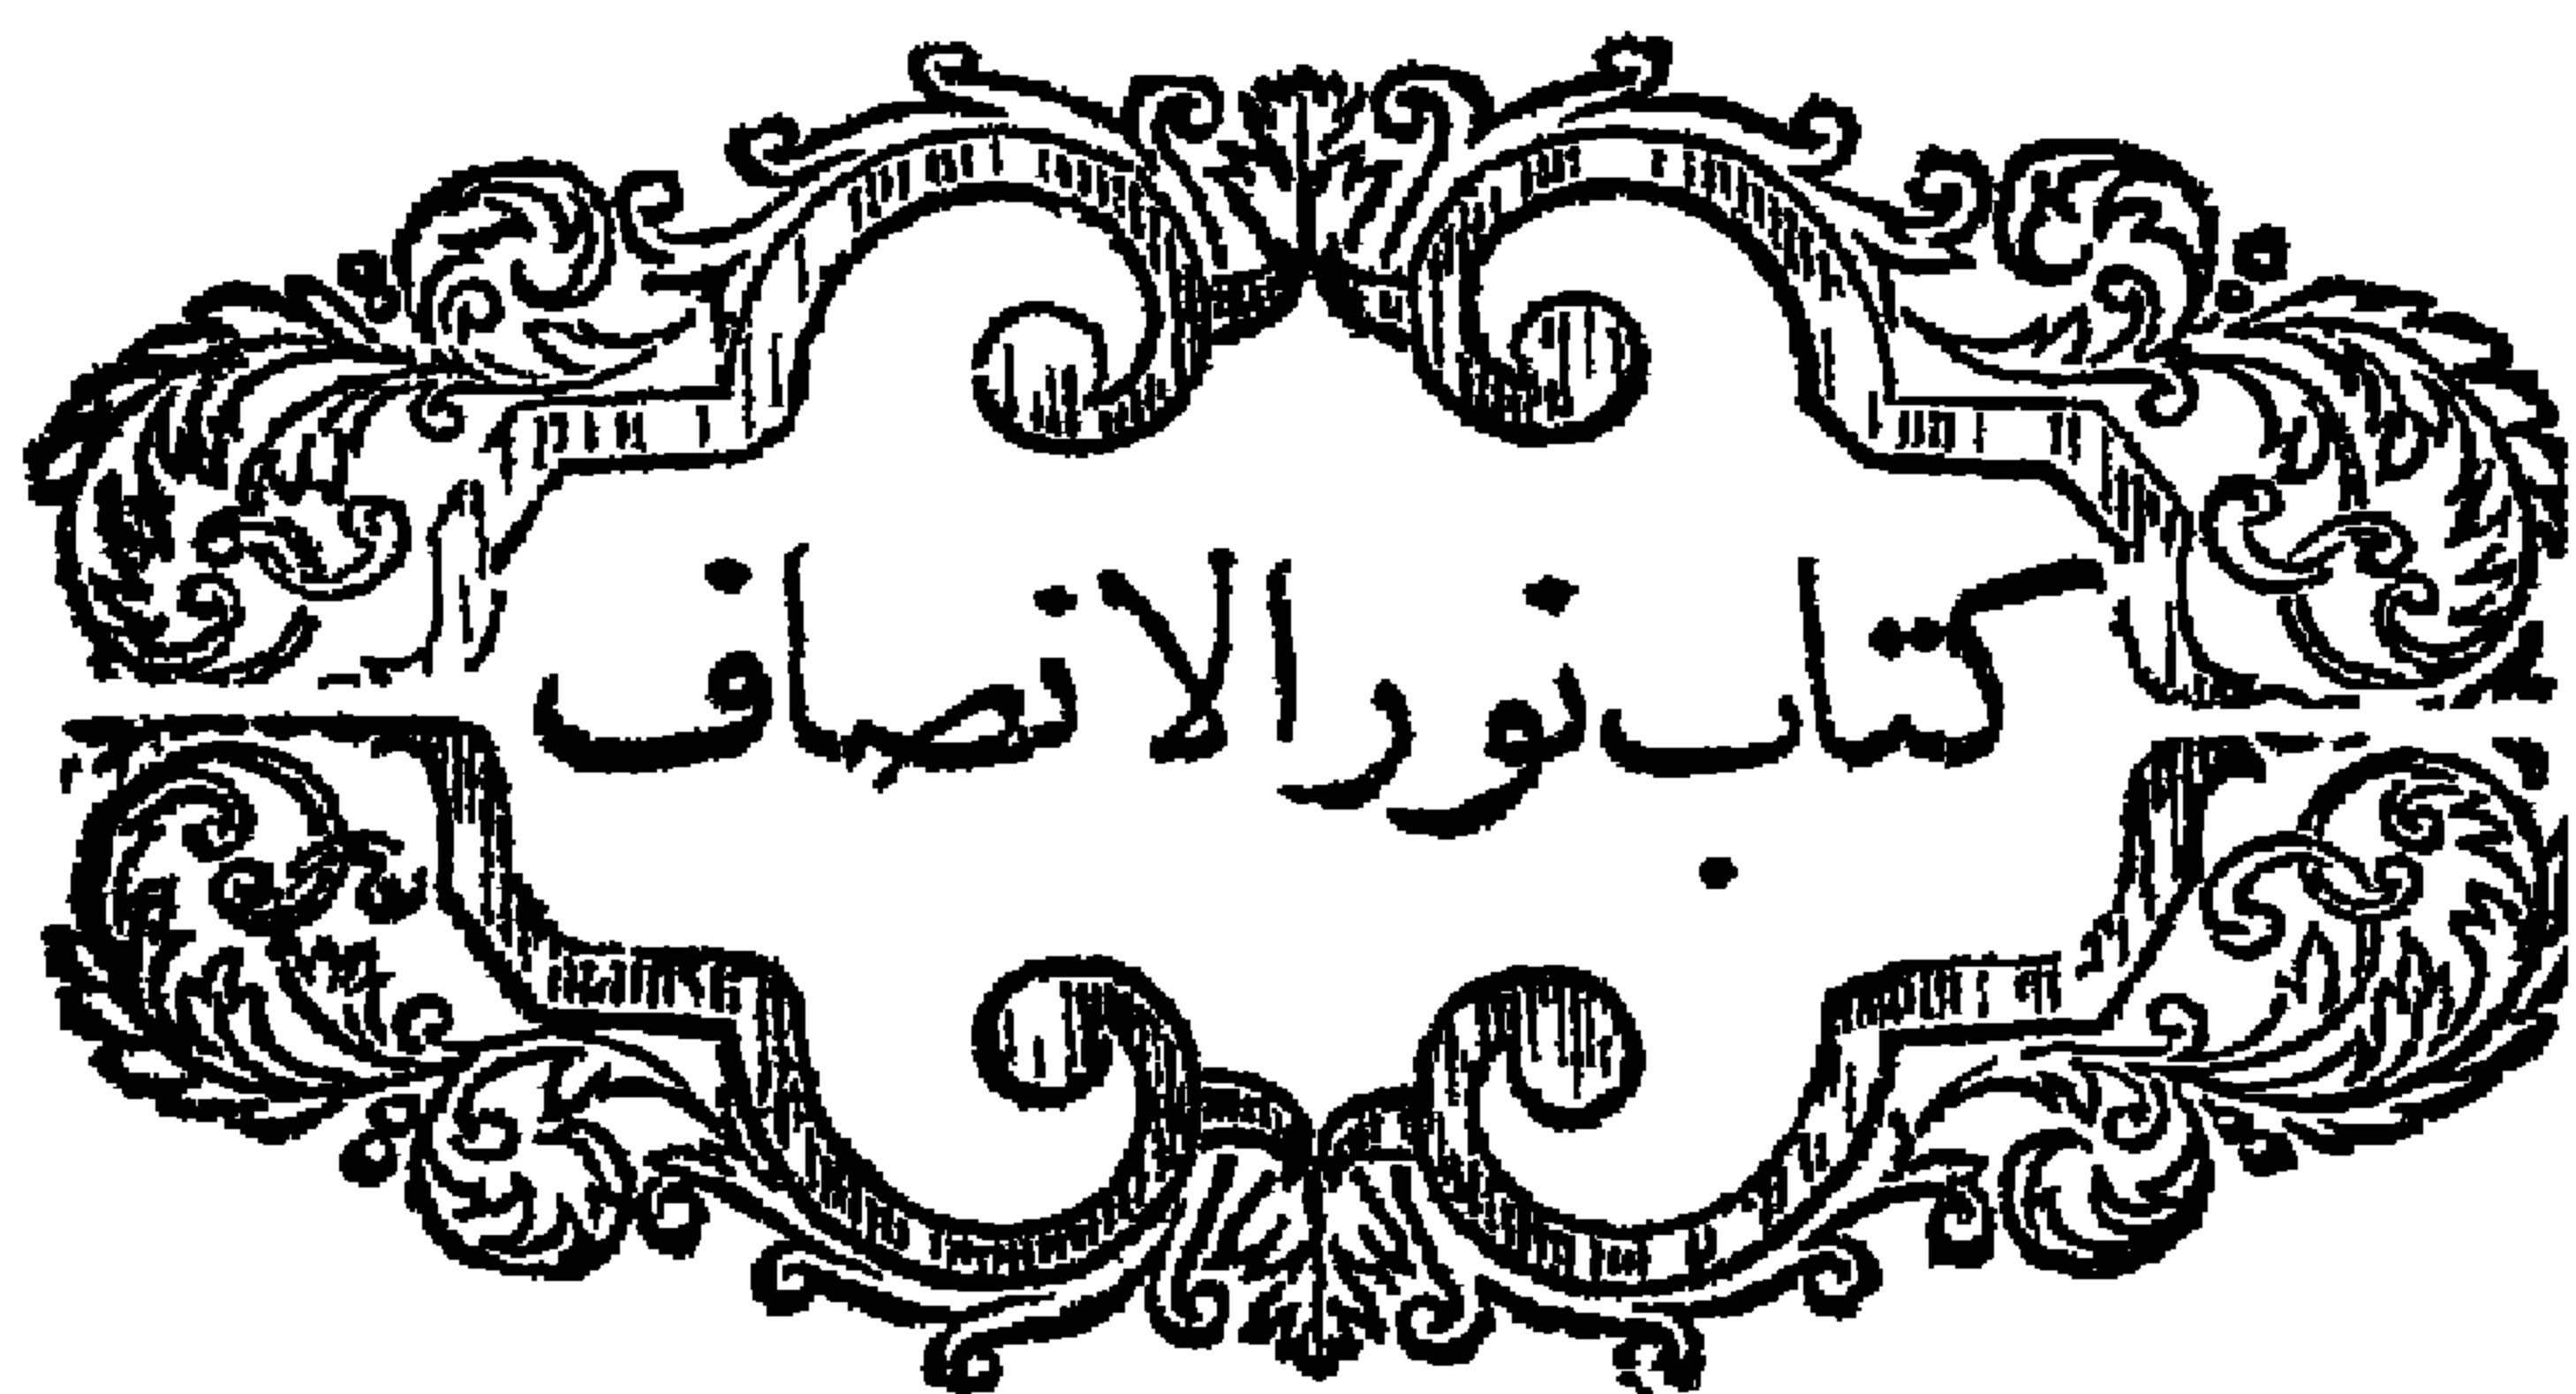 كتاب نور الانصاف